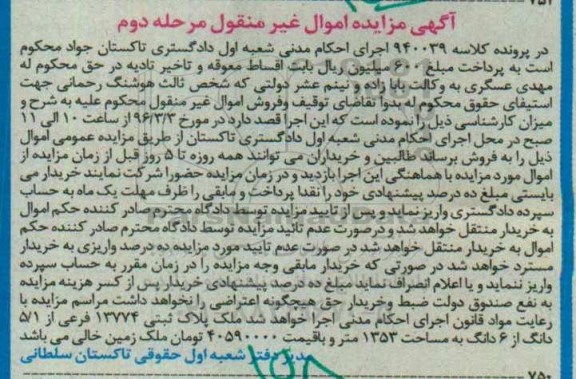 ۷۵۱
آگهی مزایده اموال غیر منقول مرحله دوم
در پرونده کلاسه ۹۴۰۰۳۹ اجرای احکام مدنی شعبه اول دادگستری تاکستان جواد محکوم
است به پرداخت مبلغ ۶۰۰ میلیون ریال بابت اقساط معوقه و تاخیر تادیه در حق محکوم له
مهدی عسگری به وکالت بابا زاده و نیم عشر دولتی که شخص ثالث هوشنگ رحمانی جهت
استیفای حقوق محکوم له بدوا تقاضای توقیف وفروش اموال غیر منقول محکوم علیه به شرح و
میزان کارشناسی ذیل را نموده است که این اجرا قصد دارد در مورخ ۹۶/۳/۳ از ساعت ۱۰ الی ۱۱
صبح در محل اجرای احکام مدنی شعبه اول دادگستری تاکستان از طریق مزایده عمومی اموال
ذیل را به فروش برساند طالبین و خریداران می توانند همه روزه تا ۵ روز قبل از زمان مزایده از
اموال مورد مزایده با هماهنگی این اجرا بازدید و در زمان مزایده حضورا شرکت نمایند خریدار می
بایستی مبلغ ده درصد پیشنهادی خود را نقدا پرداخت و مابقی را ظرف مهلت یک ماه به حساب
سپرده دادگستری واریز نماید و پس از تایید مزایده توسط دادگاه محترم صادر کننده حکم اموال
به خریدار منتقل خواهد شد و درصورت عدم تائید مزایده توسط دادگاه محترم صادر کننده حکم
اموال به خریدار منتقل خواهد شد در صورت عدم تایید مورد مزایده ده درصد واریزی به خریدار
مسترد خواهد شد در صورتی که خریدار مابقی وجه مزایده را در زمان مقرر به حساب سپرده
واریز ننماید و یا اعلام انصراف نماید مبلغ ده درصد پیشنهادی خریدار پس از کسر هزینه مزایده
به نفع صندوق دولت ضبط وخریدار حق هیچگونه اعتراضی را نخواهد داشت مراسم مزایده با
رعایت مواد قانون اجرای احکام مدنی اجرا خواهد شد ملک پلاک ثبتی ۱۳۷۷۴ فرعی از ۵/۱
دانگ از ۶ دانگ به مساحت ۱۳۵۳ متر و باقیمت ۴۰۵۹۰۰۰۰ تومان ملک زمین خالی می باشد
مدیر دفتر شعبه اول حقوقی تاکستان سلطانی
۷۵۰